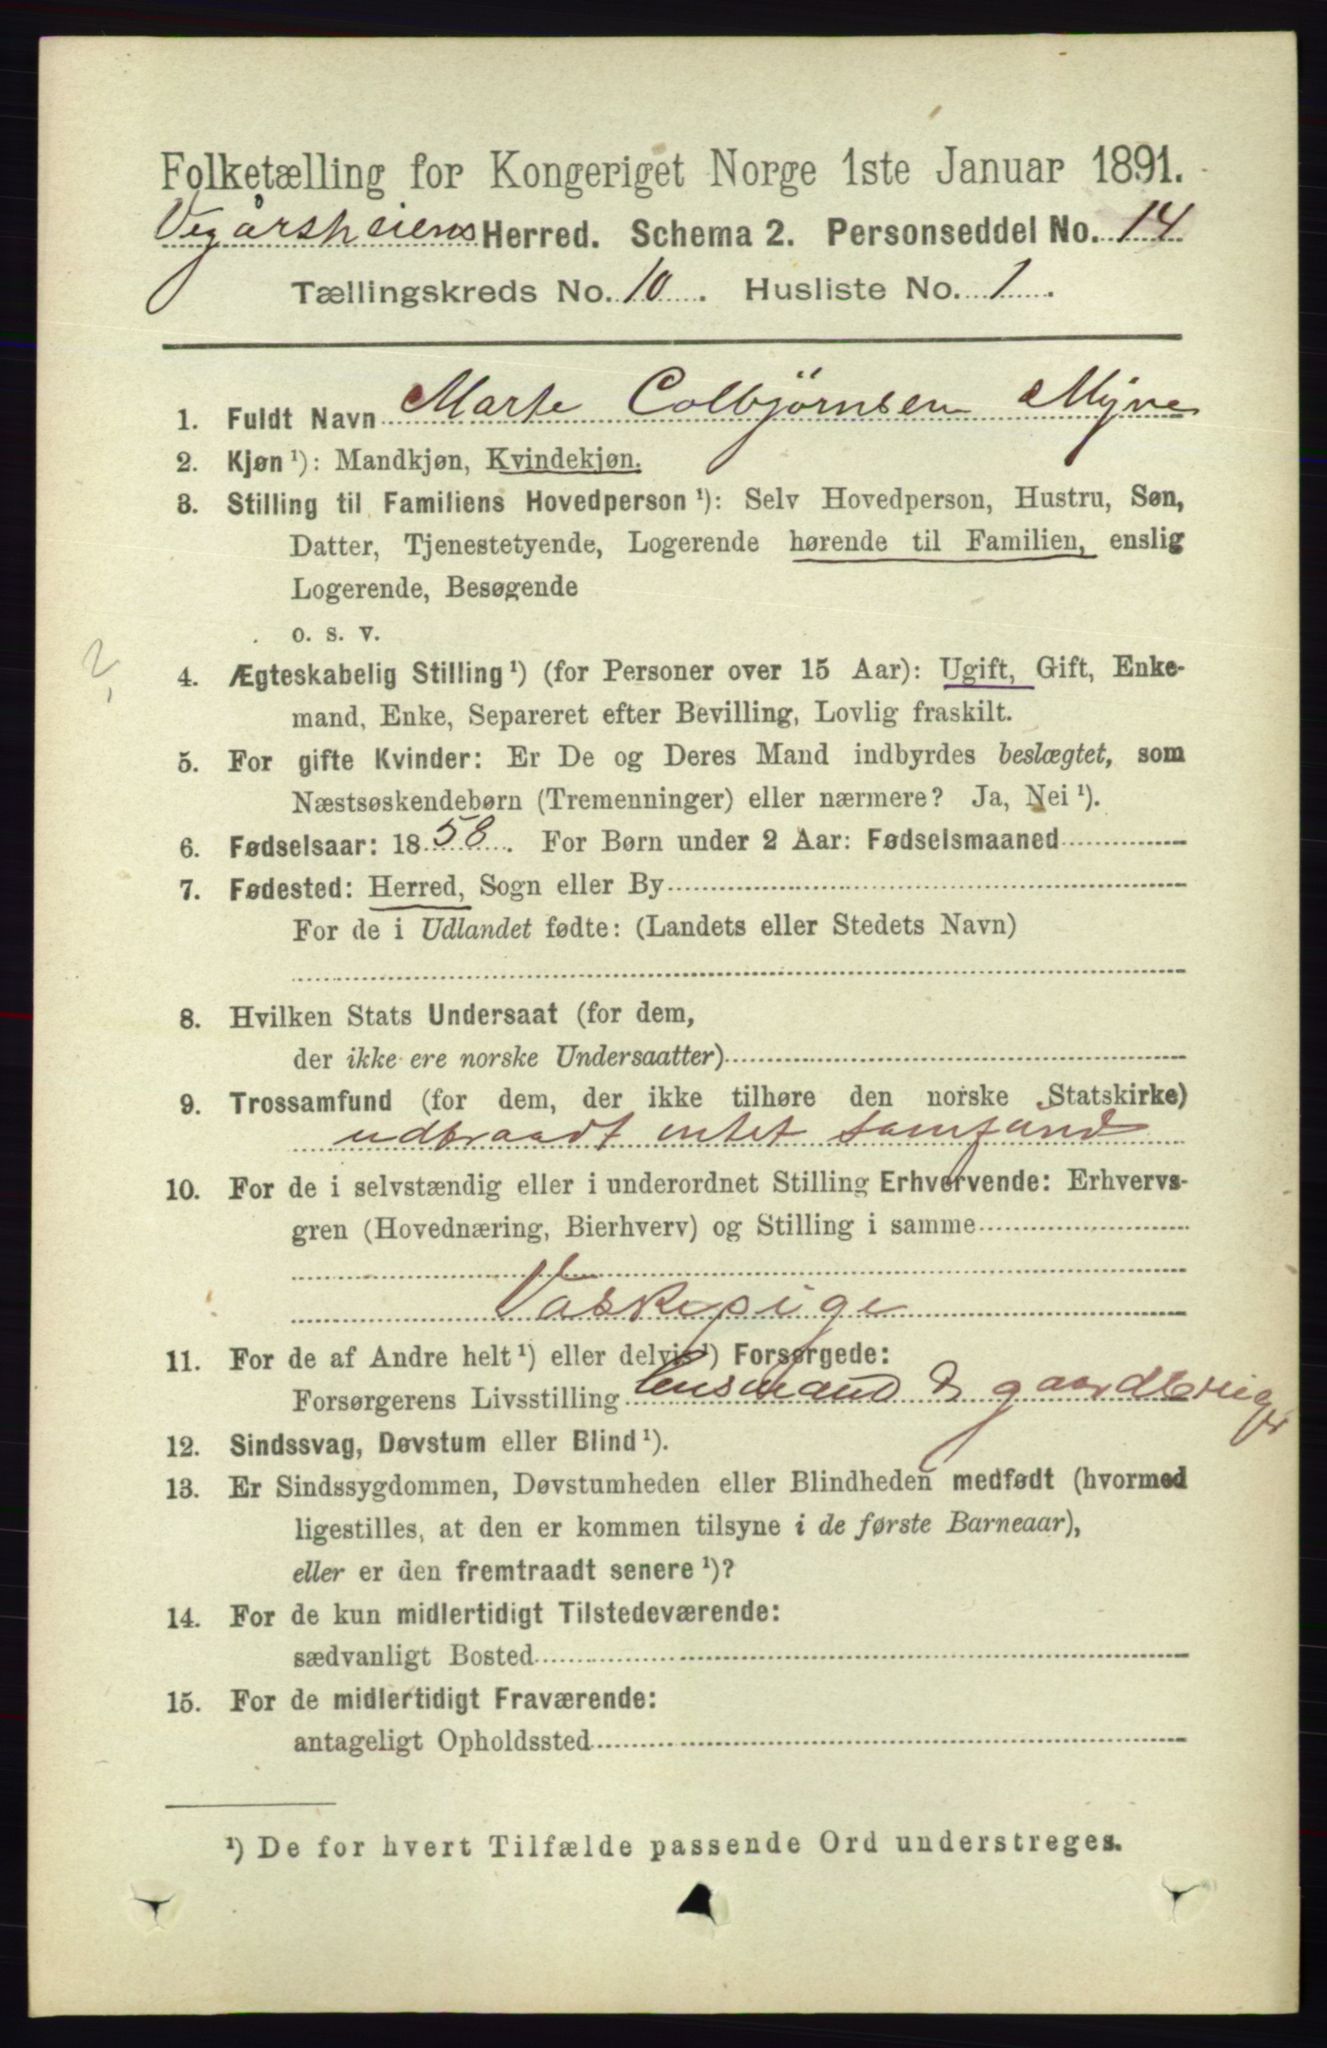 Folketælling for Kongeriget Norge 1ste Januar 1891.
Vegårsheiens Herred. Schema 2. Personseddel No. 14
Tællingskreds No. 10. Husliste No. 1.
1. Fuldt Navn Marte Colbjørnsen Myre
2. Kjøn ¹): Mandkjøn, Kvindekjøn.
3. Stilling til Familiens Hovedperson ¹): Selv Hovedperson, Hustru, Søn,
Datter, Tjenestetyende, Logerende hørende til Familien, enslig
Logerende, Besøgende
o. s. v.
4. Ægteskabelig Stilling ¹) (for Personer over 15 Aar): Ugift, Gift, Enke-
mand, Enke, Separeret efter Bevilling, Lovlig fraskilt.
5. For gifte Kvinder: Er De og Deres Mand indbyrdes beslægtet, som
Næstsøskendebørn (Tremenninger) eller nærmere? Ja, Nei ¹).
6. Fødselsaar: 1858. For Børn under 2 Aar: Fødselsmaaned
7. Fødested: Herred, Sogn eller By
For de i Udlandet fødte: (Landets eller Stedets Navn)
8. Hvilken Stats Undersaat (for dem,
der ikke ere norske Undersaatter)
9. Trossamfund (for dem, der ikke tilhøre den norske Statskirke)
udtraadt intet samfund
10. For de i selvstændig eller i underordnet Stilling Erhvervende: Erhvervs-
gren (Hovednæring, Bierhverv) og Stilling i samme
Vaskepige
11. For de af Andre helt ¹) eller delvis ¹) Forsørgede:
Forsørgerens Livsstilling lensmand & gaardbruger
12. Sindssvag, Døvstum eller Blind ¹).
13. Er Sindssygdommen, Døvstumheden eller Blindheden medfødt (hvormed
ligestilles, at den er kommen tilsyne i de første Barneaar),
eller er den fremtraadt senere ¹)?
14. For de kun midlertidigt Tilstedeværende:
sædvanligt Bosted
15. For de midlertidigt Fraværende:
antageligt Opholdssted
¹) De for hvert Tilfælde passende Ord understreges.